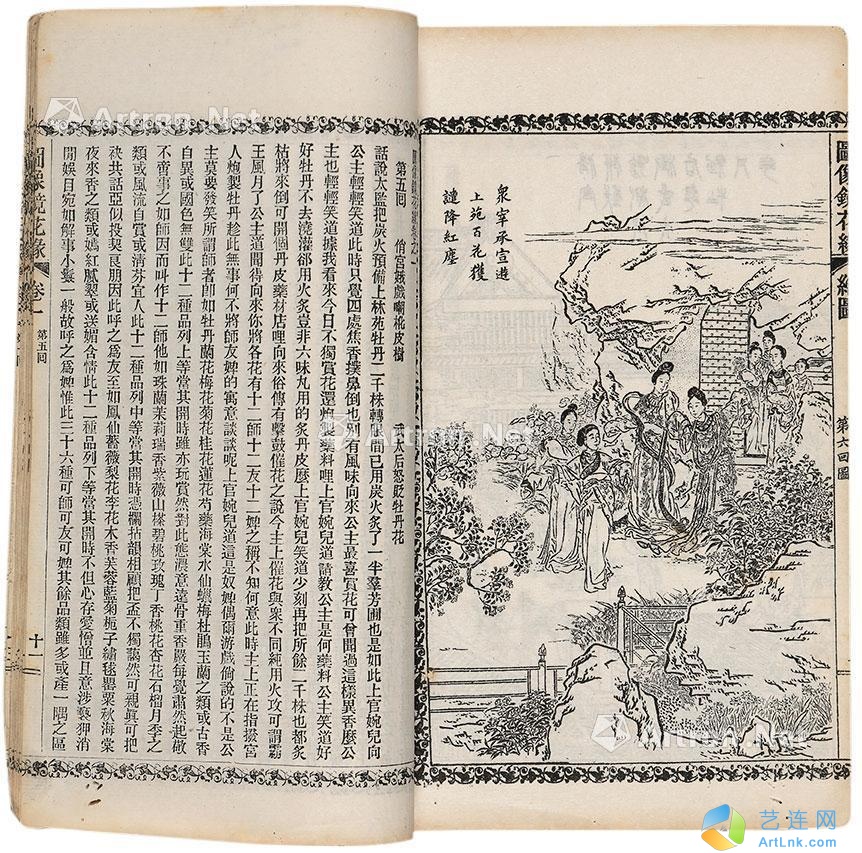 圖像鏡花緣
繪圖
第六回圖
衆宰承宣遊
上苑百花獲
譴降紅塵
第五回 俏宮娥戲嘲枇皮樹 武太后怒貶牡丹花
話說太監把炭火預備上林苑牡丹二千株轉間已用炭火炙了一半羣芳圃也是如此上官婉兒向
公主輕輕笑道此時只覺四處焦香撲鼻倒也別有風味向來公主最喜賞花可曾聞過這樣異香麼公
主也輕輕笑道據我看來今日不獨賞花還炮製藥料哩上官婉兒道請教公主是何藥料公主笑道好
好牡丹不去澆灌卻用火炙豈非六味丸用的炙丹皮麼上官婉兒笑道少刻再把所餘二千株也都炙
枯將來倒可開個丹皮藥材店哩向來俗傳有擊鼓催花之說今主上催花與衆不同純用火攻可謂霸
王風月了公主道聞得向來你將各花有十二師十二友十二婢之稱不知何意此時主上正在指撥宮
人炮製牡丹趁此無事何不將師友婢的寓意談談呢上官婉兒道這是奴婢偶爾游戲倘說的不是公
主莫要發笑所謂師者卽如牡丹蘭花梅花菊花桂花蓮花芍藥海棠水仙蠟梅杜鵑玉蘭之類或古香
自異或國色無雙此十二種品列上等當其開時雖亦玩賞然對此態濃意遠骨重香嚴每覺肅然起敬
不啻事之如師因而叫作十二師他如珠蘭茉莉瑞香紫薇山樣碧桃玫瑰丁香桃花杏花石榴月季之
類或風流自賞或清芬宜人此十二種品列中等當其開時憑欄拈韻相顧把盃不獨藹然可親眞可把
袂共話亞似投契良朋因此呼之爲友至如鳳仙薔薇梨花李花木香芙蓉藍菊梔子繡毬罌粟秋海棠
夜來香之類或嫣紅膩翠或送媚含情此十二種品列下等當其開時不但心存愛憎並且意涉褻狎消
閒娛目宛如解事小鬟一般故呼之爲婢惟此三十六種可師可友可婢其餘品類雖多或產一隅之區
圖像鏡花緣
卷一
第五回
十一
Artron.Net
艺连网
ArtLnk.com